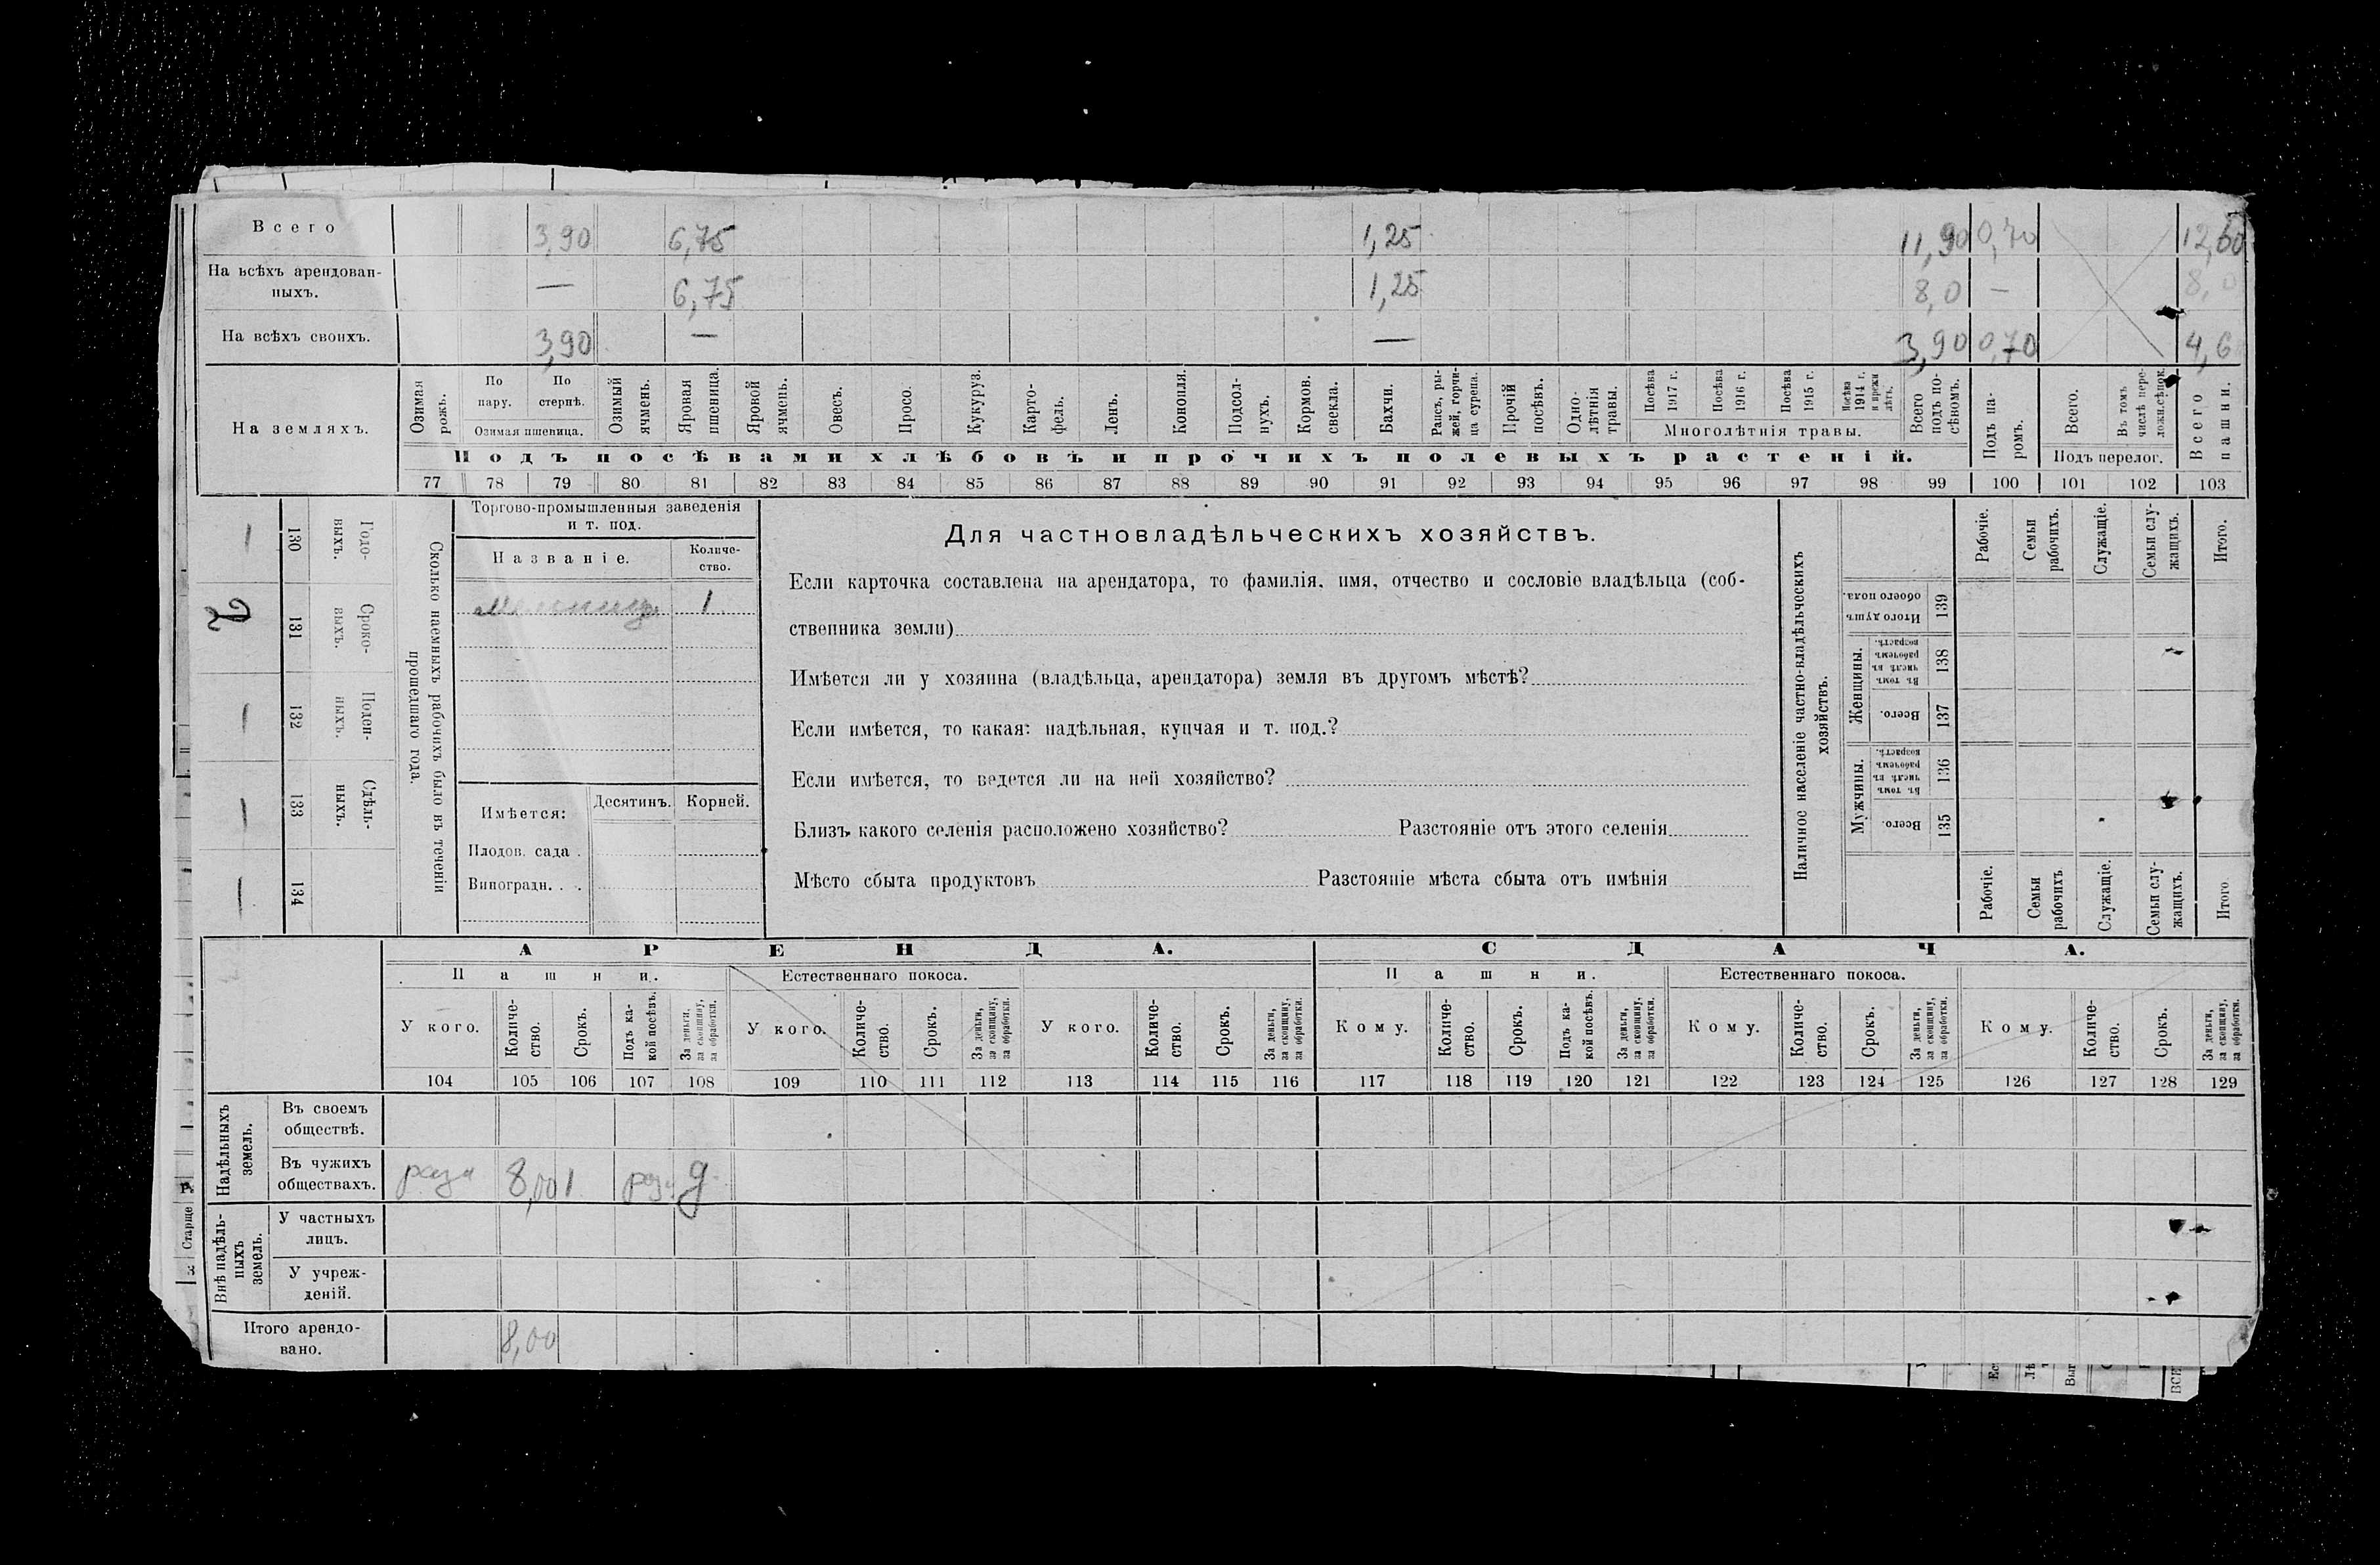 Всего 3,90 6,75 1,25 11,90 0,70 12,60
На всѣхъ арендован-
ныхъ. — 6,75 1,25 8,0 — 8,0
На всѣхъ своихъ. 3,90 — — 3,90 0,70 4,6
На земляхъ.
Озимая рожь.
По пару.
По стернѣ.
Озимая пшеница.
Озимый ячмень.
Яровая пшеница.
Яровой ячмень.
Овесъ.
Просо.
Кукуруз.
Карто-
фель.
Ленъ.
Конопля.
Подсол-
нухъ.
Кормов.
свекла.
Бахчи.
Рапсъ, ры-
жей, горчи-
ца сурепа.
Прочій
посѣвъ.
Одно-
лѣтнія
травы.
Посѣва
1917 г.
Посѣва
1916 г.
Посѣва
1915 г.
Посѣва
1914 г.
и прежн
лѣтъ.
Многолѣтнія травы.
Всего
подъ по-
сѣвомъ.
Подъ па-
ромъ.
Всего.
Въ томъ
числѣ пере-
ложн.сѣнок.
Подъ перелог.
Всего
пашни.
Подъ посѣвами хлѣбовъ и прочихъ полевыхъ растеній.
77 78 79 80 81 82 83 84 85 86 87 88 89 90 91 92 93 94 95 96 97 98 99 100 101 102 103
Сколько наемныхъ рабочихъ было въ теченіи
прошедшаго года.
Годо-
выхъ.
130
—
Сроко-
выхъ.
131
2
Поден-
ныхъ.
132
—
Сдѣль-
ныхъ.
133
—
134
—
Торгово-промышленныя заведенія
и т. под.
Названіе.
Количе-
ство.
1
Имѣется:
Десятинъ.
Корней.
Плодов. сада .
Виноградн. . .
Для частновладѣльческихъ хозяйствъ.
Если карточка составлена на арендатора, то фамилія, имя, отчество и сословіе владѣльца (соб-
ственника земли)
Имѣется ли у хозяина (владѣльца, арендатора) земля въ другомъ мѣстѣ?
Если имѣется, то какая: надѣльная, купчая и т. под.?
Если имѣется, то ведется ли на ней хозяйство?
Близъ какого селенія расположено хозяйство? Разстояніе отъ этого селенія
Мѣсто сбыта продуктовъ Разстояніе мѣста сбыта отъ имѣнія
Наличное населеніе частно-владѣльческихъ
хозяйствъ.
Рабочіе.
Семьи
рабочихъ.
Служащіе.
Семьи слу-
жащихъ.
Итого.
Итого душъ
обоего пола.
139
Женщины.
Въ томъ
числѣ въ
рабочемъ
возрастѣ.
138
Всего.
137
Мужчины.
Въ томъ
числѣ въ
рабочемъ
возрастѣ.
136
Всего.
135
Рабочіе.
Семьи
рабочихъ
Служащіе.
Семьи слу-
жащихъ.
Итого
АРЕНДА. СДАЧА.
Пашни. Естественнаго покоса. Пашни. Естественнаго покоса.
У кого.
Количе-
ство.
Срокъ.
Подъ ка-
кой посѣвъ.
За деньги,
за скопщину,
за обработки.
У кого.
Количе-
ство.
Срокъ.
За деньги,
за скопщину,
за обработки.
У кого.
Количе-
ство.
Срокъ.
За деньги,
за скопщину,
за обработки.
Кому.
Количе-
ство.
Срокъ.
Подъ ка-
кой посѣвъ.
За деньги,
за скопщину,
за обработки.
Кому.
Количе-
ство.
Срокъ.
За деньги,
за скопщину,
за обработки.
Кому.
Количе-
ство.
Срокъ.
За деньги,
за скопщину,
за обработки.
104 105 106 107 108 109 110 111 112 113 114 115 116 117 118 119 120 121 122 123 124 125 126 127 128 129
Надѣльныхъ
земель.
Въ своемъ
обществѣ.
Въ чужихъ
обществахъ. 8,00 1 д
Внѣ надѣль-
ныхъ
земель.
У частныхъ
лицъ.
У учреж-
деній.
Итого арендо-
вано. 8,00
Старше